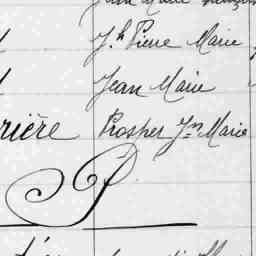 Jh Pierre Marie
Jean Marie
rière Prosper Jn Marie
P